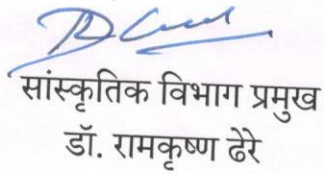 सांस्कृतिक विभाग प्रमुख
डॉ. रामकृष्ण ढेरे